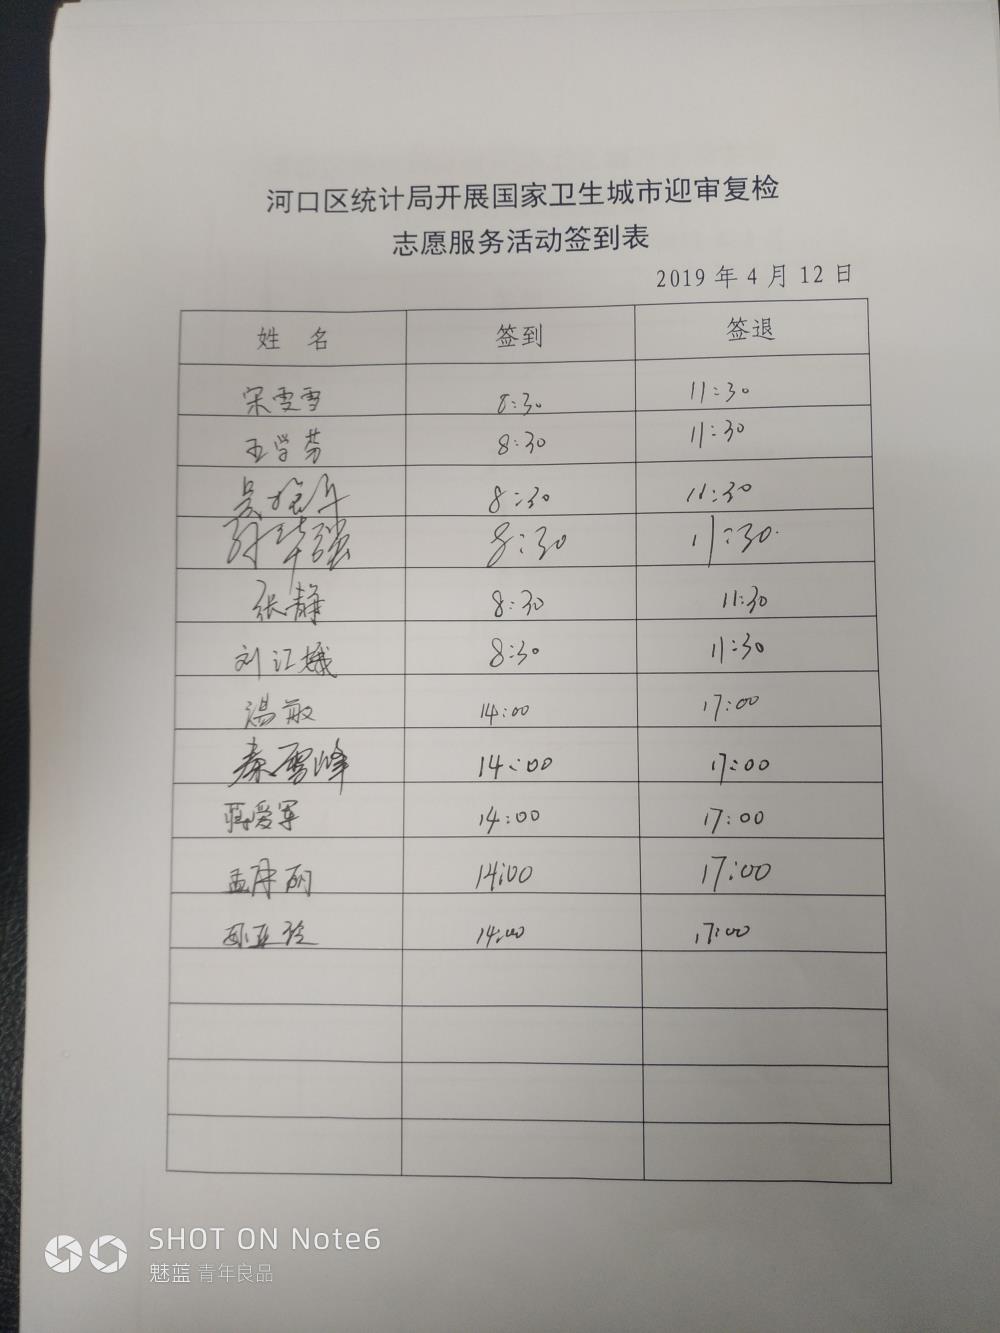 河口区统计局开展国家卫生城市迎审复检
志愿服务活动签到表
2019年4月12日
姓 名 签到 签退
宋雪雪 8:30 11:30
王学芬 8:30 11:30
吴 8:30 11:30
8:30 11:30
张静 8:30 11:30
刘江娥 8:30 11:30
汤敏 14:00 17:00
秦雪峰 14:00 17:00
蒋爱军 14:00 17:00
孟丽 14:00 17:00
亚玲 14:00 17:00
SHOT ON Note6
魅蓝 青年良品